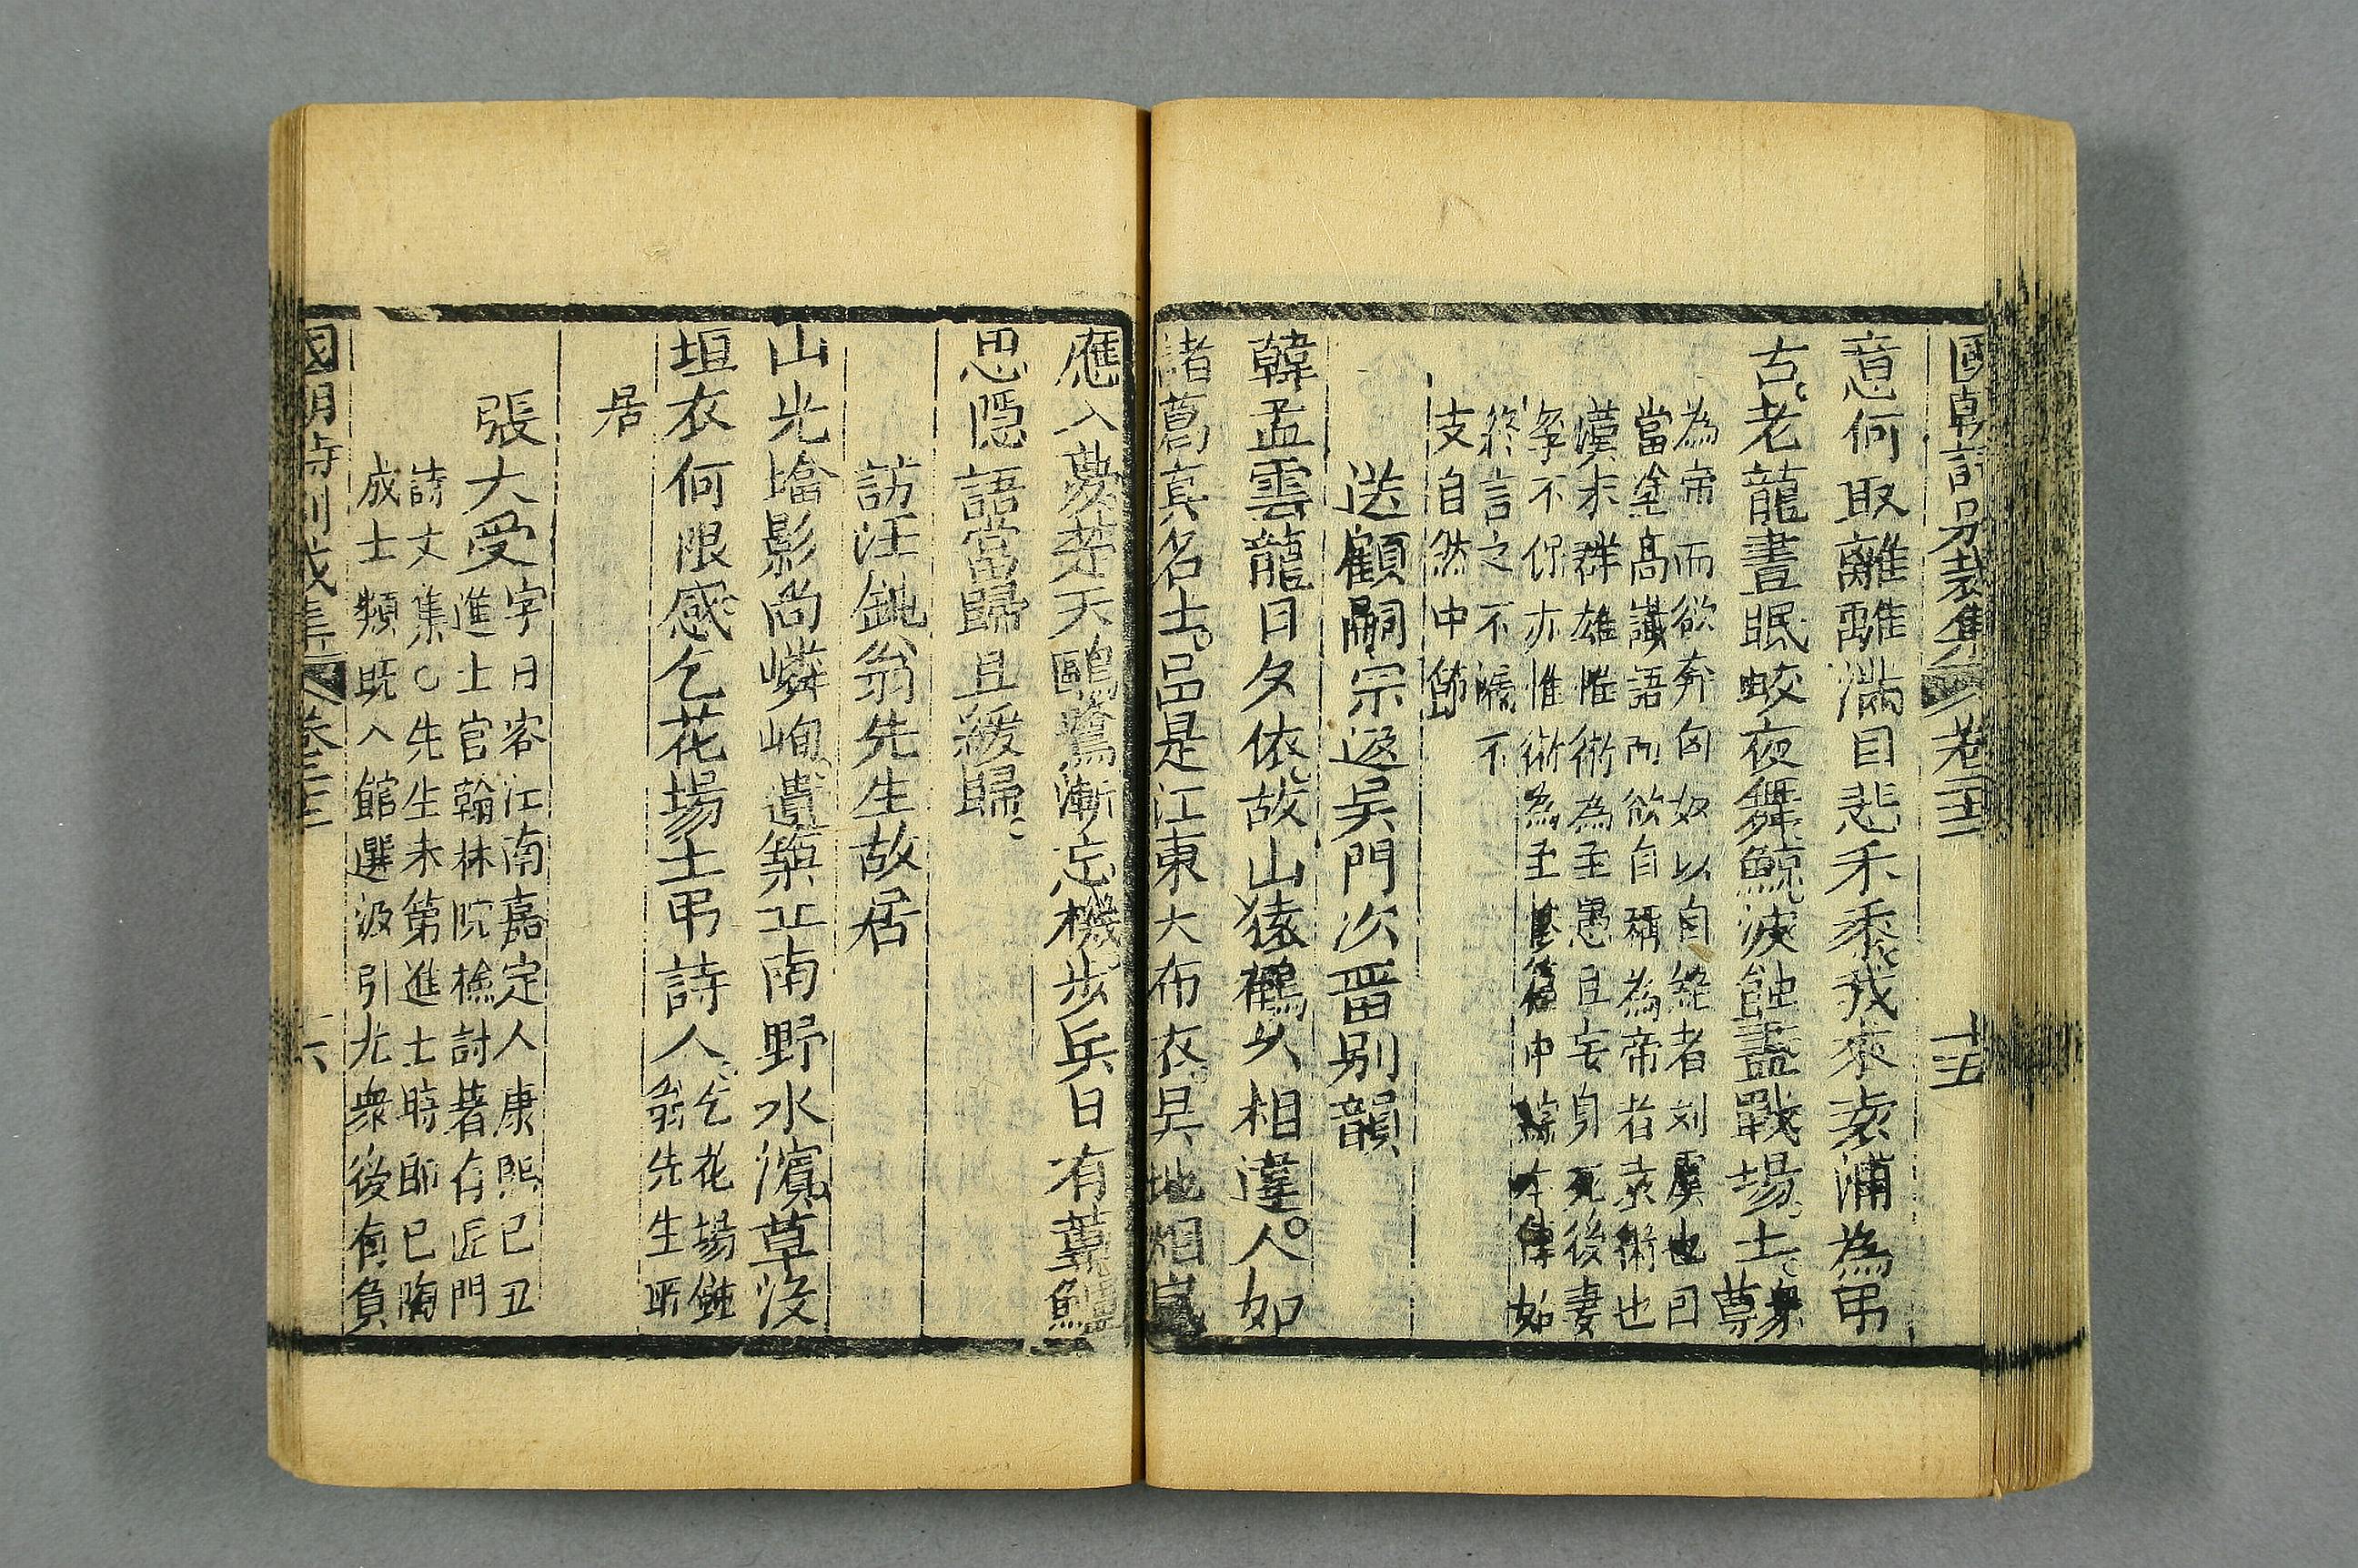 國朝詩別裁集 卷二十二 十五
意何取離離滿目悲禾黍我來袁浦為弔
古老龍晝眠蛟夜舞鯨波蝕盡戰場土
為帝而欲奔匈奴以自絶者刘虞也曰
當塗高讖語而欲自稱為帝者袁術也
漢末群雄惟術為至愚且妄身死後妻
孥不保亦惟術為至篇中
終言之不
支自然中節
送顧嗣宗返吴門次畱别韻
韓孟雲龍日夕依故山猿鶴久相違人如
諸葛真名士邑是江東大布衣吴地相
應入夢楚天鷗鷺漸忘機步兵日有蓴鱸
思隱語當歸且緩歸
訪汪鈍翁先生故居
山光墖影尚嶙峋遺築丘南野水濱草沒
垣衣何限感乞花塲土弔詩人乞花塲鈍
翁先生所
居
張大受字日容江南嘉定人康熙己丑
進士官翰林院檢討著有匠門
詩文集○先生未第進士時即已陶
成士類既入館選汲引尤衆後有負
卷二十二 十六